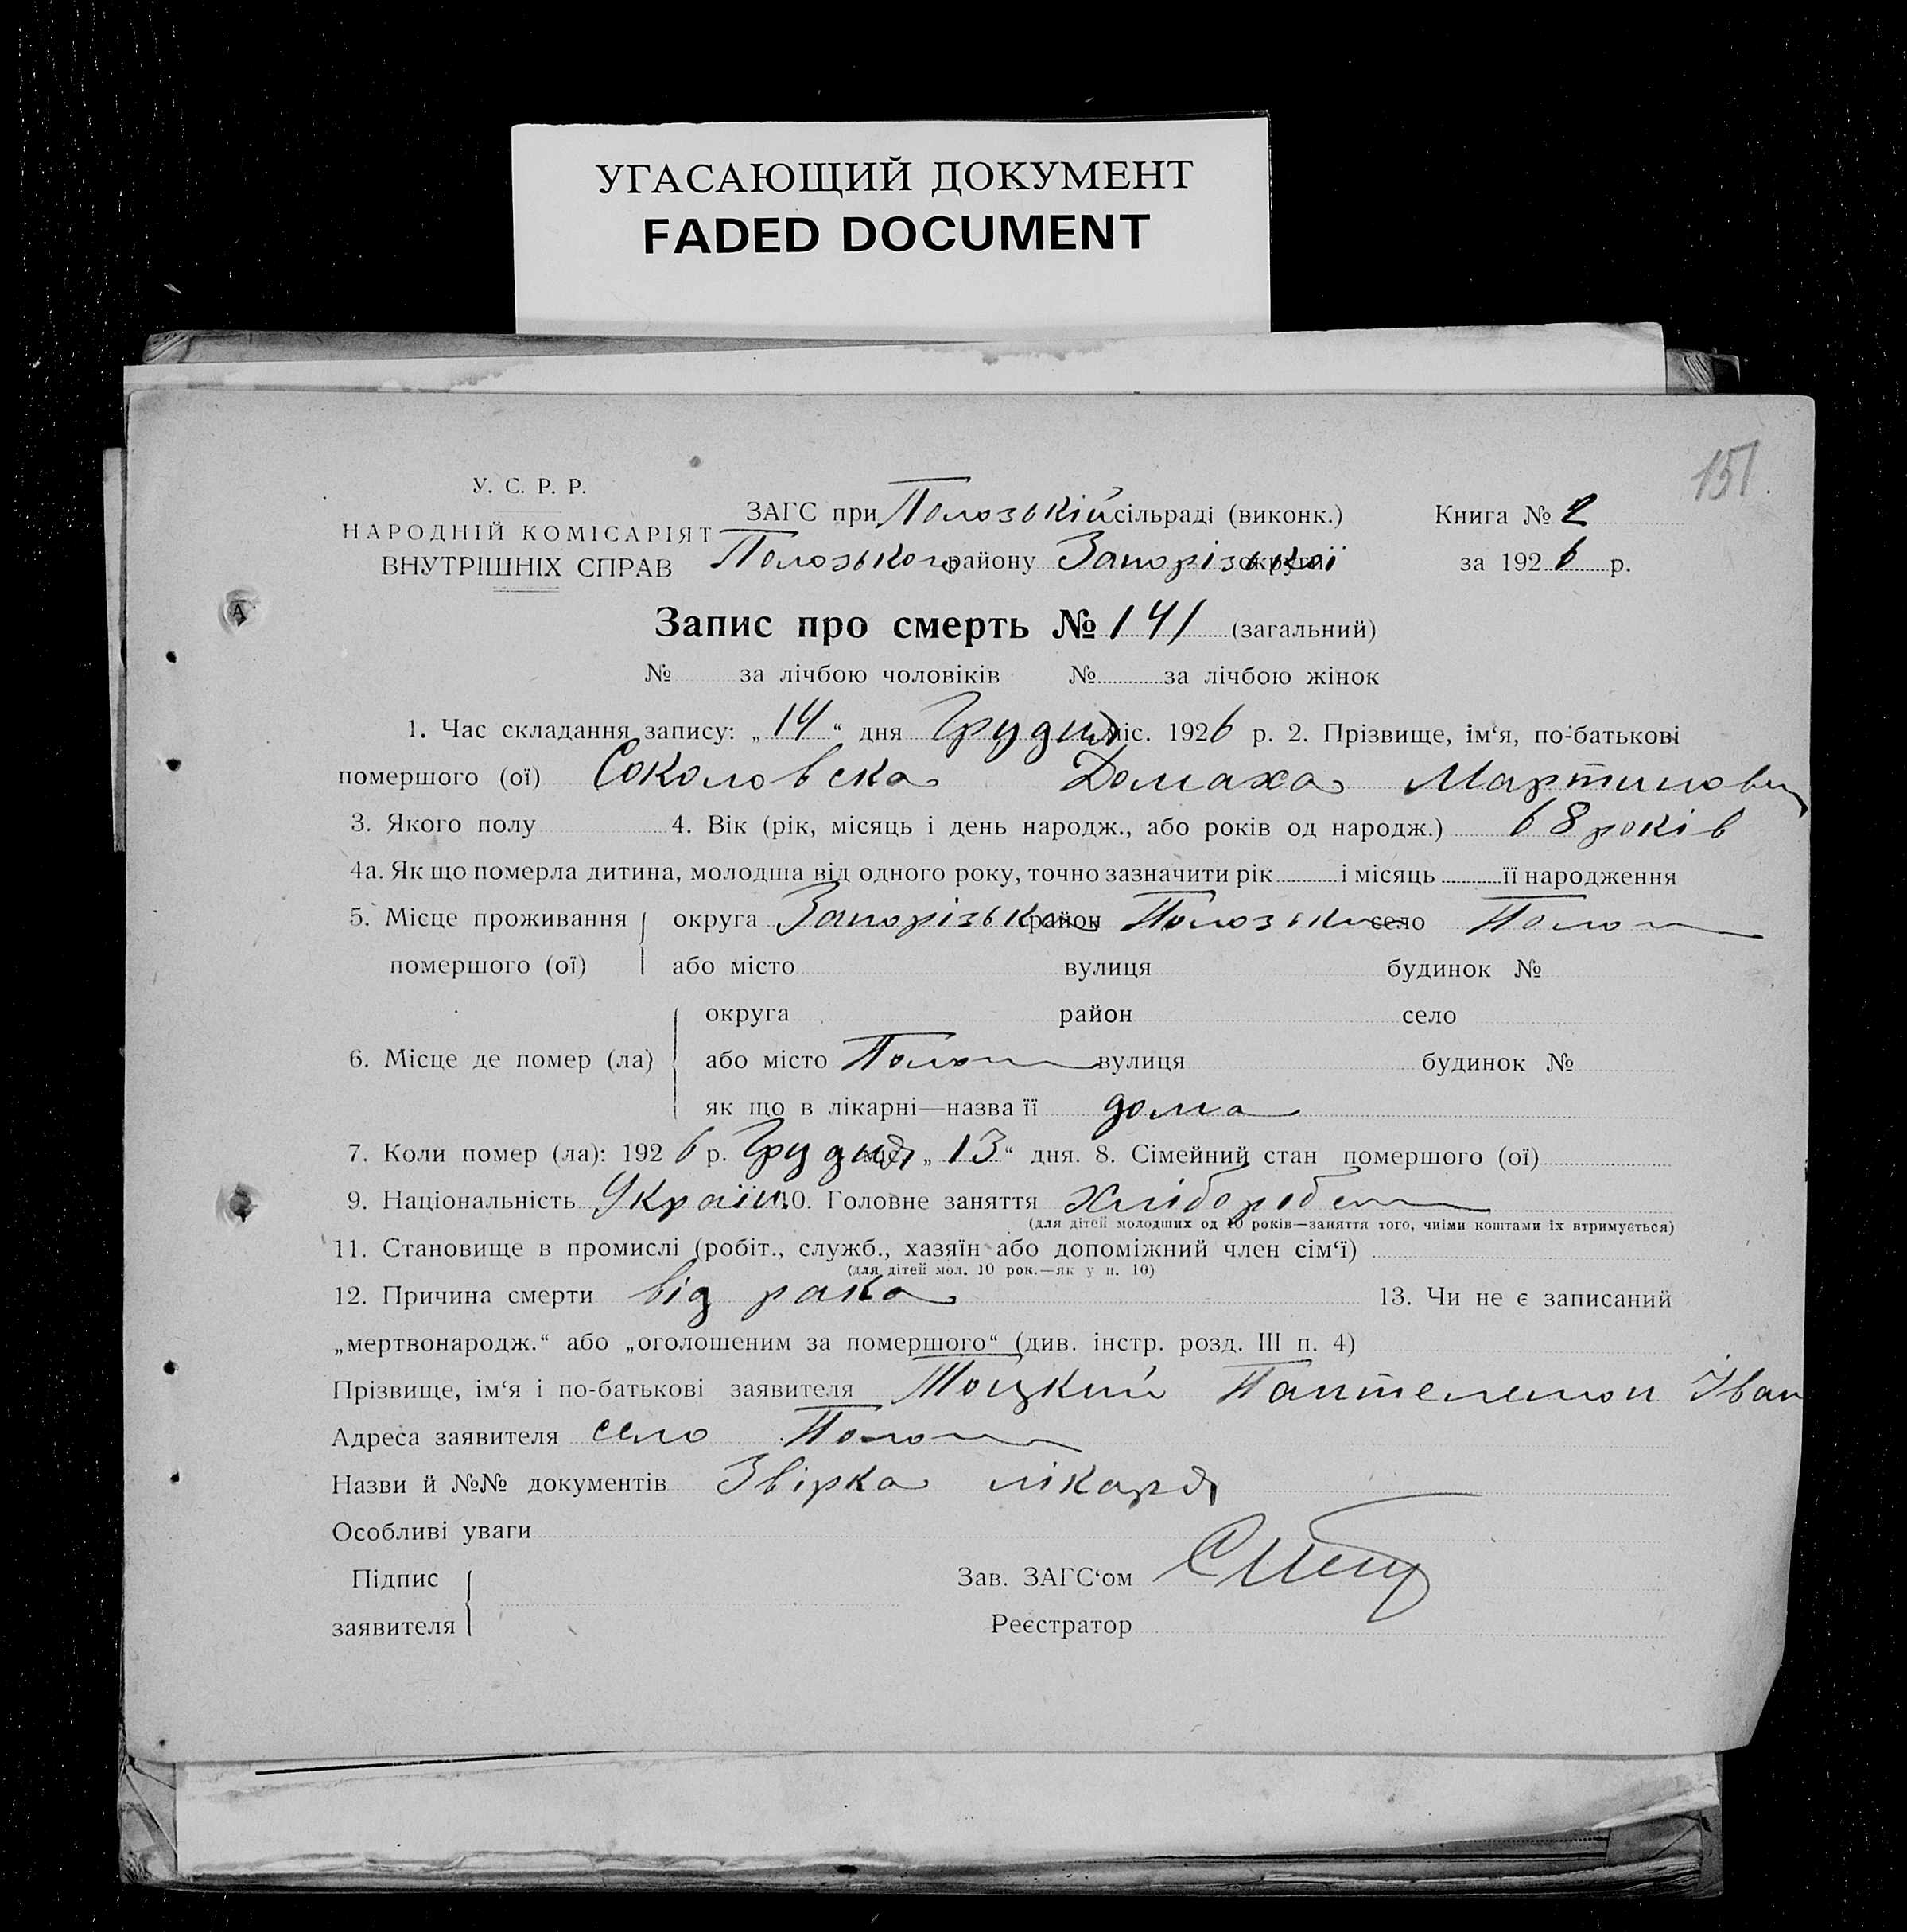 УГАСАЮЩИЙ ДОКУМЕНТ
FADED DOCUMENT
151
У. С. Р. Р.
НАРОДНІЙ КОМІСАРІЯТ
ВНУТРІШНІХ СПРАВ
ЗАГС при Полозькій сільраді (виконк.) Книга № 2
Полозького району Запорізької округи за 1926 р.
Запис про смерть № 141 (загальний)
№ за лічбою чоловіків № за лічбою жінок
1. Час складання запису: „14“ дня Грудня міс. 1926 р. 2. Прізвище, ім‘я, по-батькові
помершого (ої) Соколовска Домаха Мартиновн
3. Якого полу 4. Вік (рік, місяць і день народж., або років од народж.) 68 років
4а. Як що померла дитина, молодша від одного року, точно зазначити рік і місяць її народження
5. Місце проживання помершого (ої) округа Запорізька район Полозьки село Пологи
або місто вулиця будинок №
6. Місце де помер (ла) округа район село
або місто Пологи вулиця будинок №
як що в лікарні—назва її дома
7. Коли помер (ла): 1926 р. Грудня міс. „13“ дня. 8. Сімейний стан помершого (ої)
9. Національність Україн. 10. Головне заняття хлібороб
(для дітей молодших од 10 років—заняття того, чиїми коштами їх втримується)
11. Становище в промислі (робіт., служб., хазяїн або допоміжний член сім‘ї)
(для дітей мол. 10 рок.—як у п. 10)
12. Причина смерти від рака 13. Чи не є записаний
„мертвонародж.“ або „оголошеним за помершого“ (див. інстр. розд. III п. 4)
Прізвище, ім‘я і по-батькові заявителя Тоцкий Пантелемон Іван
Адреса заявителя село Пологи
Назви й №№ документів Звірка лікаря
Особливі уваги
Підпис заявителя
Зав. ЗАГС‘ом
Реєстратор